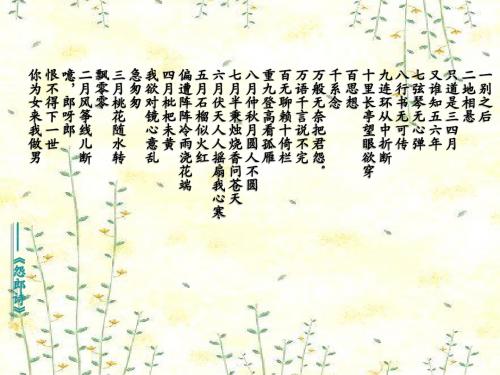 一别之后
二地相悬
只道是三四月
又谁知五六年
七弦琴无心弹
八行书无可传
九连环从中折断
十里长亭望眼欲穿
百思想
千系念
万般无奈把君怨。
万语千言说不完
百无聊赖十倚栏
重九登高看孤雁
八月仲秋月圆人不圆
七月半秉烛烧香问苍天
六月伏天人人摇扇我心寒
五月石榴似火红
偏遭阵阵冷雨浇花端
四月枇杷未黄
我欲对镜心意乱
急匆匆
三月桃花随水转
飘零零
二月风筝线儿断
噫，郎呀郎
恨不得下一世
你为女来我做男
——《怨郎诗》